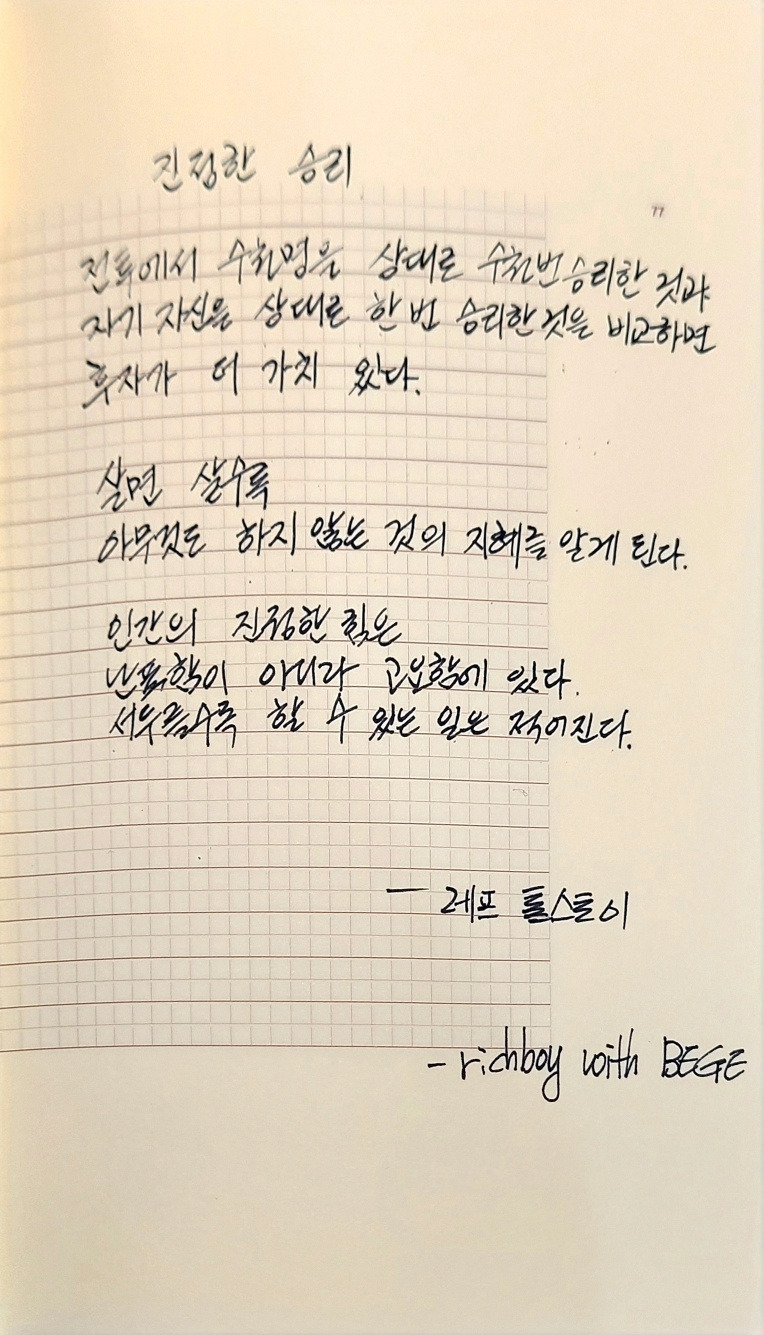 진정한 승리
77
전투에서 수천명을 상대로 수천번 승리한 것과
자기 자신을 상대로 한 번 승리한 것을 비교하면
후자가 더 가치 있다.
살면 살수록
아무것도 하지 않는 것의 지혜를 알게 된다.
인간의 진정한 힘은
난폭함이 아니라 고요함에 있다.
서두를수록 할 수 있는 일은 적어진다.
— 레프 톨스토이
- richboy with BEGE